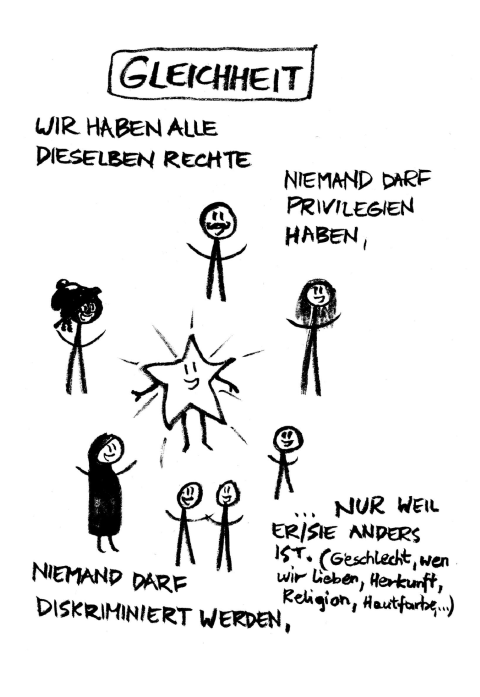 GLEICHHEIT
WIR HABEN ALLE
DIESELBEN RECHTE
NIEMAND DARF
PRIVILEGIEN
HABEN,
NIEMAND DARF
DISKRIMINIERT WERDEN,
... NUR WEIL
ER/SIE ANDERS
IST. (Geschlecht, wen
wir lieben, Herkunft,
Religion, Hautfarbe,...)